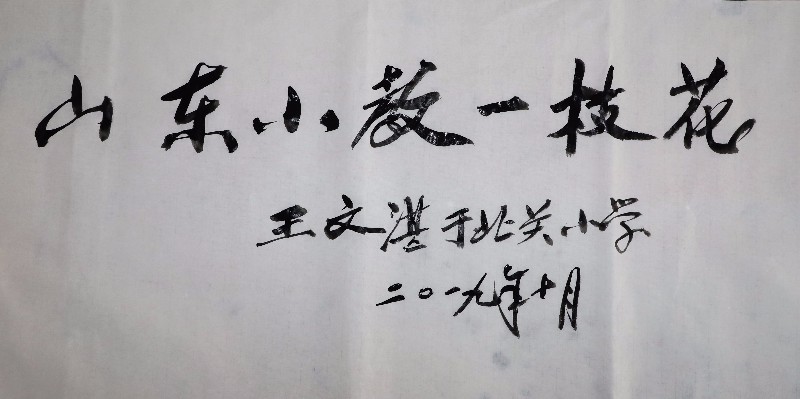 山东小教一枝花
王文湛于北关小学
二〇一九年十月